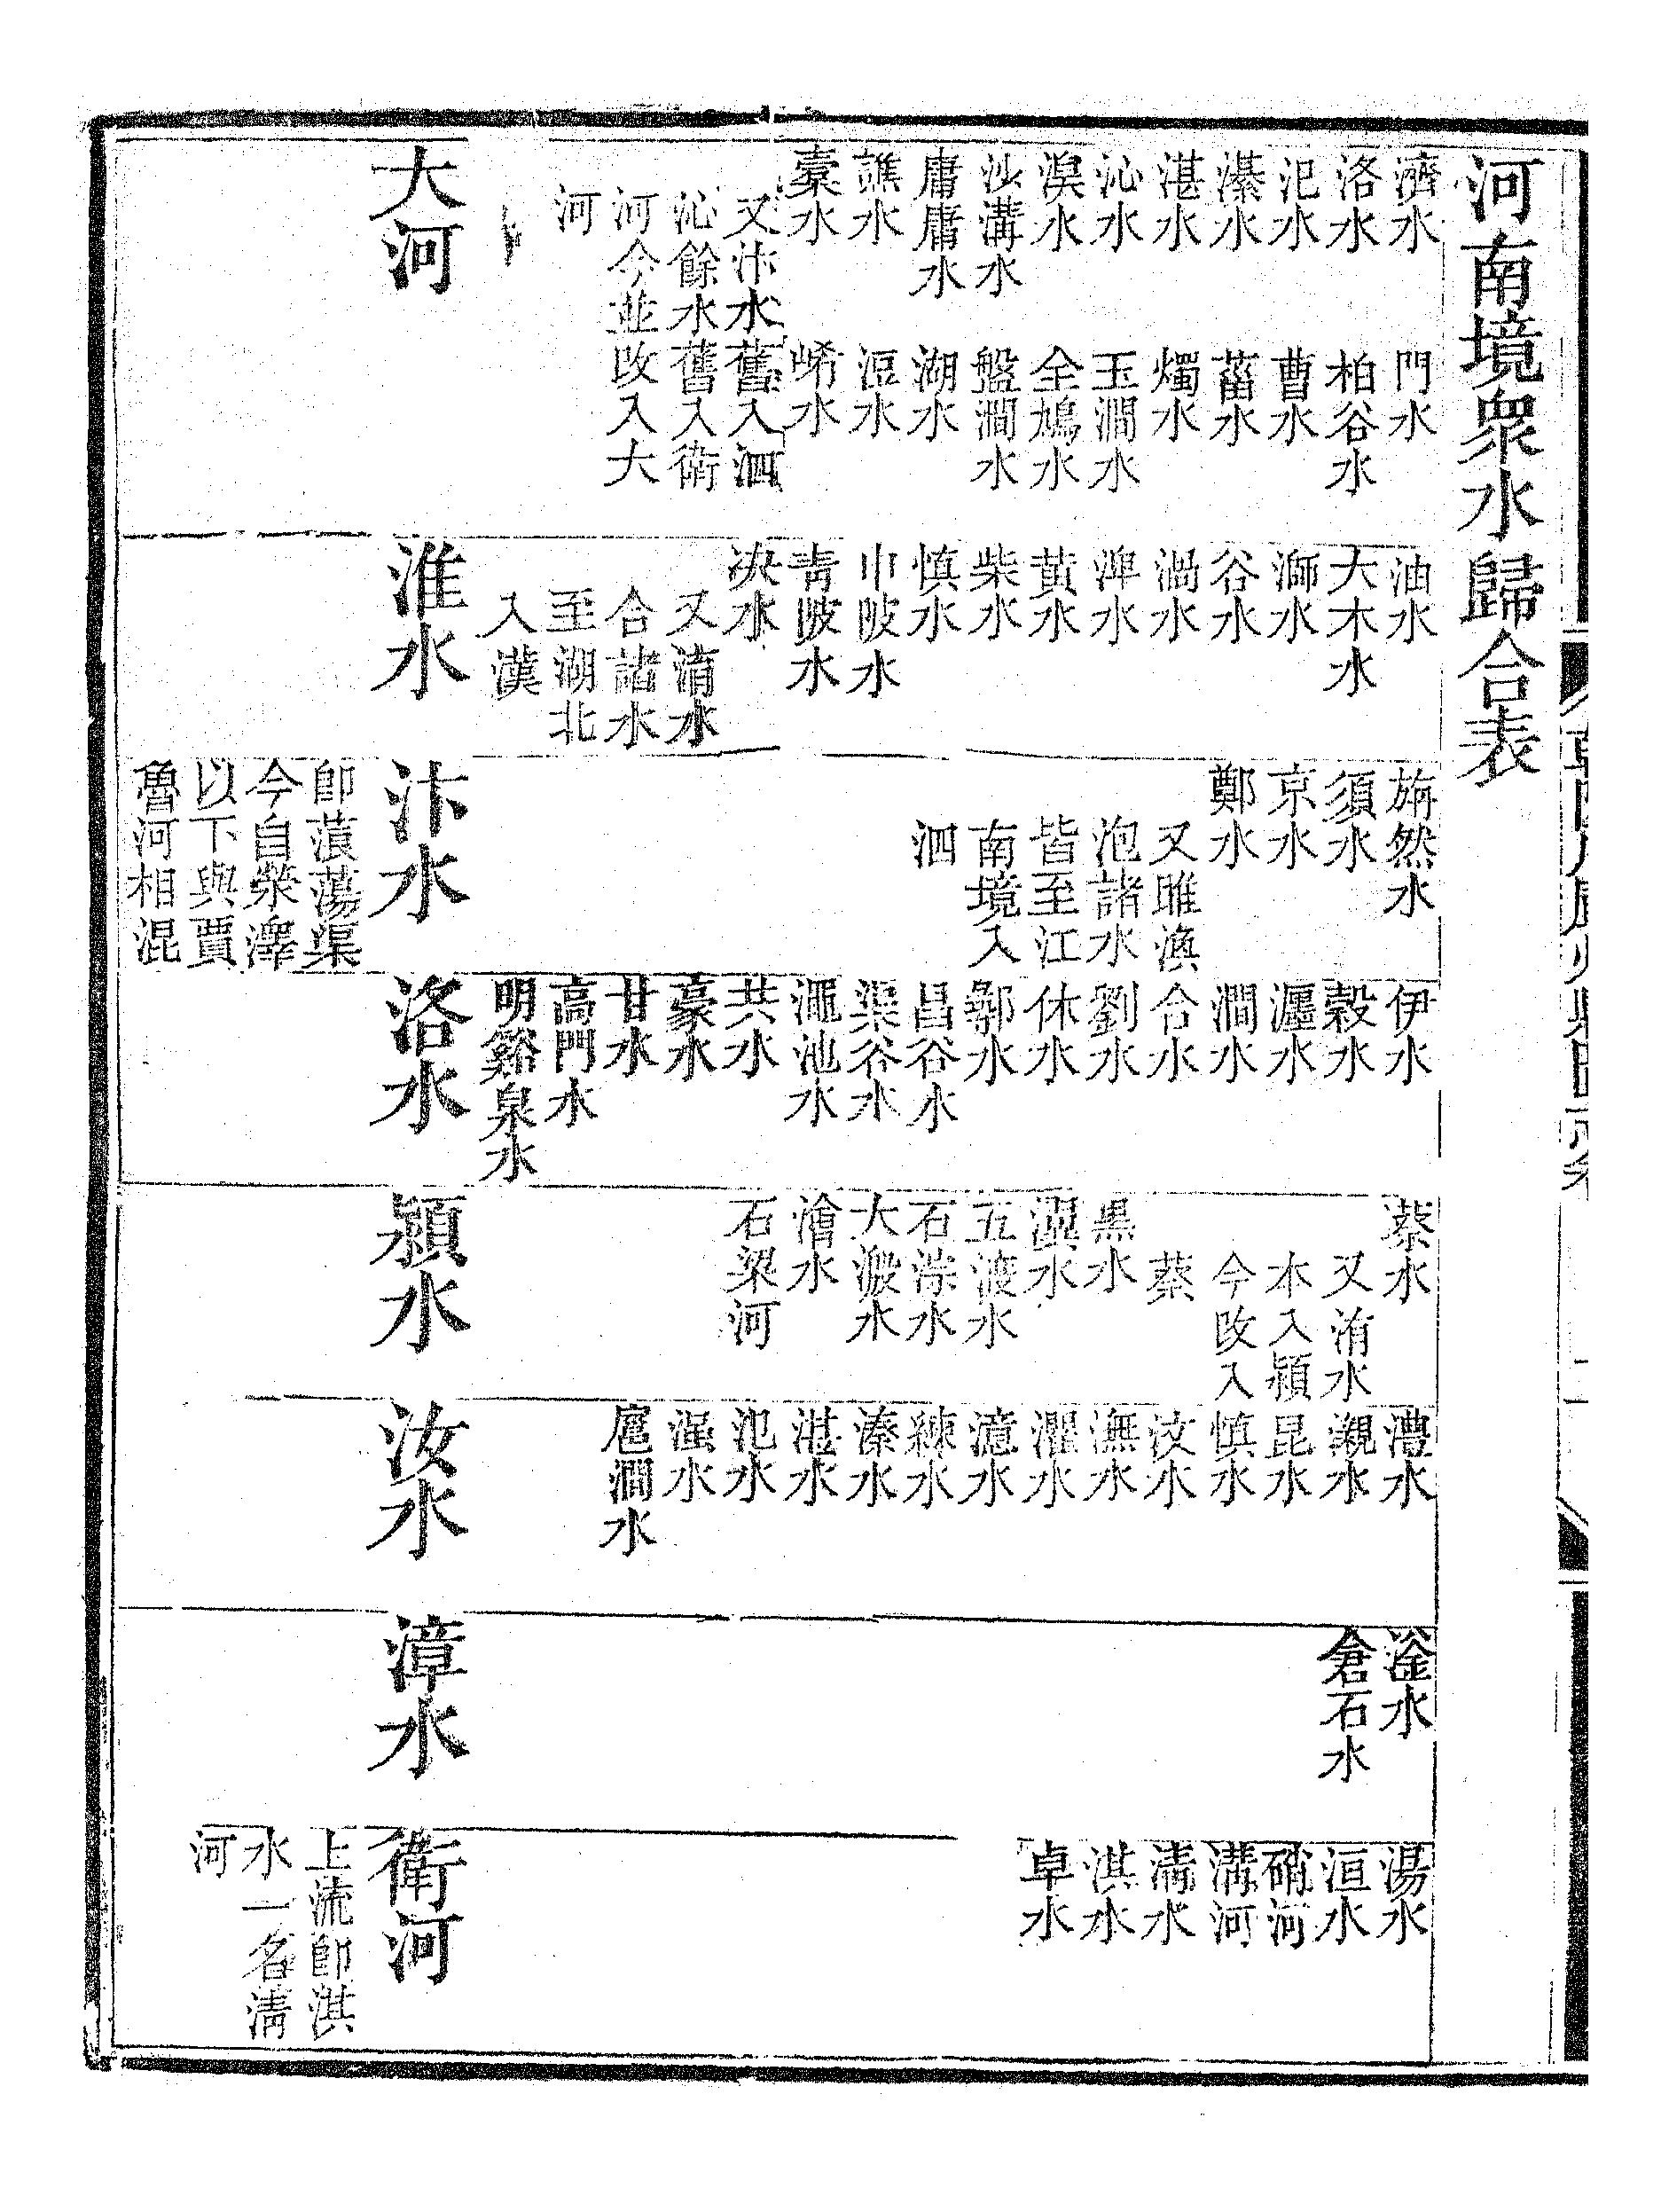 河南境衆水歸合表
濟水
洛水
汜水
瀁水
湛水
沁水
湨水
沙溝水
庸庸水
譙水
橐水
門水
柏谷水
曹水
菑水
燭水
玉澗水
全鳩水
盤澗水
湖水
洹水
崤水
又汴水舊入泗
沁餘水舊入衞
河今並改入大
河
大河
油水
大木水
溮水
谷水
渦水
渒水
黃水
柴水
慎水
巾陂水
青陂水
決水
又淯水
合諸水
至湖北
入漢
淮水
旃然水
須水
京水
鄭水
又雎渙
泡諸水
皆至江
南境入
泗
汴水
卽蒗蕩渠
今自滎澤
以下與賈
魯河相混
伊水
穀水
瀍水
澗水
合水
劉水
休水
鄩水
昌谷水
渠谷水
澠池水
共水
豪水
甘水
高門水
明谿泉水
洛水
蔡水
又洧水
本入潁
今改入
蔡
黑水
潩水
五渡水
石淙水
大濦水
澮水
石梁河
潁水
澧水
瀙水
昆水
慎水
汶水
潕水
灈水
澺水
練水
溱水
湛水
氾水
滍水
扈澗水
汝水
滏水
倉石水
漳水
湯水
洹水
硝河
溝河
清水
淇水
卓水
衞河
上流卽淇
水一名清
河